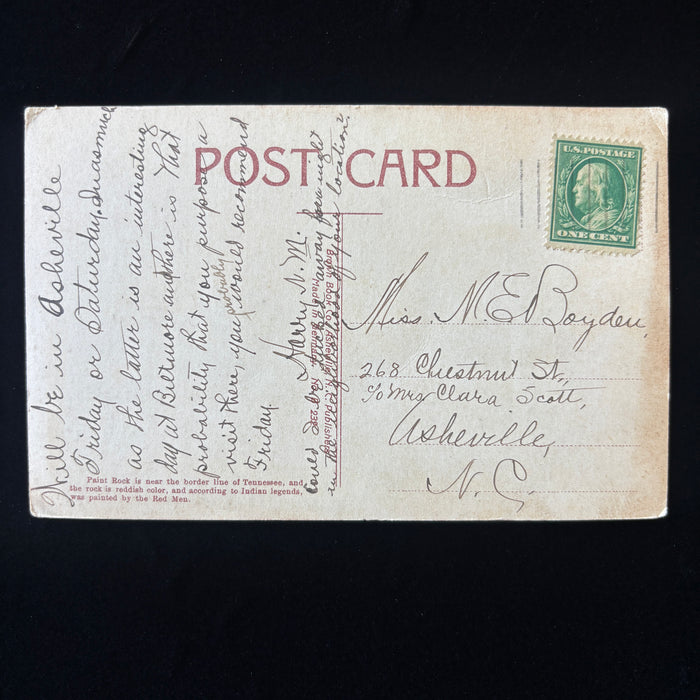 POST CARD
U.S. POSTAGE
ONE CENT
Will be in Asheville
Friday or Saturday. Inasmuch
as the latter is an interesting
day at Biltmore and there is that
probability that you purpose a
visit there, you probably would recommend
Friday.
Harry N. M.
Could I be away for night
in the neighborhood of your location?
Miss. M. E. Boyden,
268 Chestnut St.,
c/o Mrs Clara Scott,
Asheville,
N. C.
Paint Rock is near the border line of Tennessee, and
the rock is reddish color, and according to Indian legends,
was painted by the Red Men.